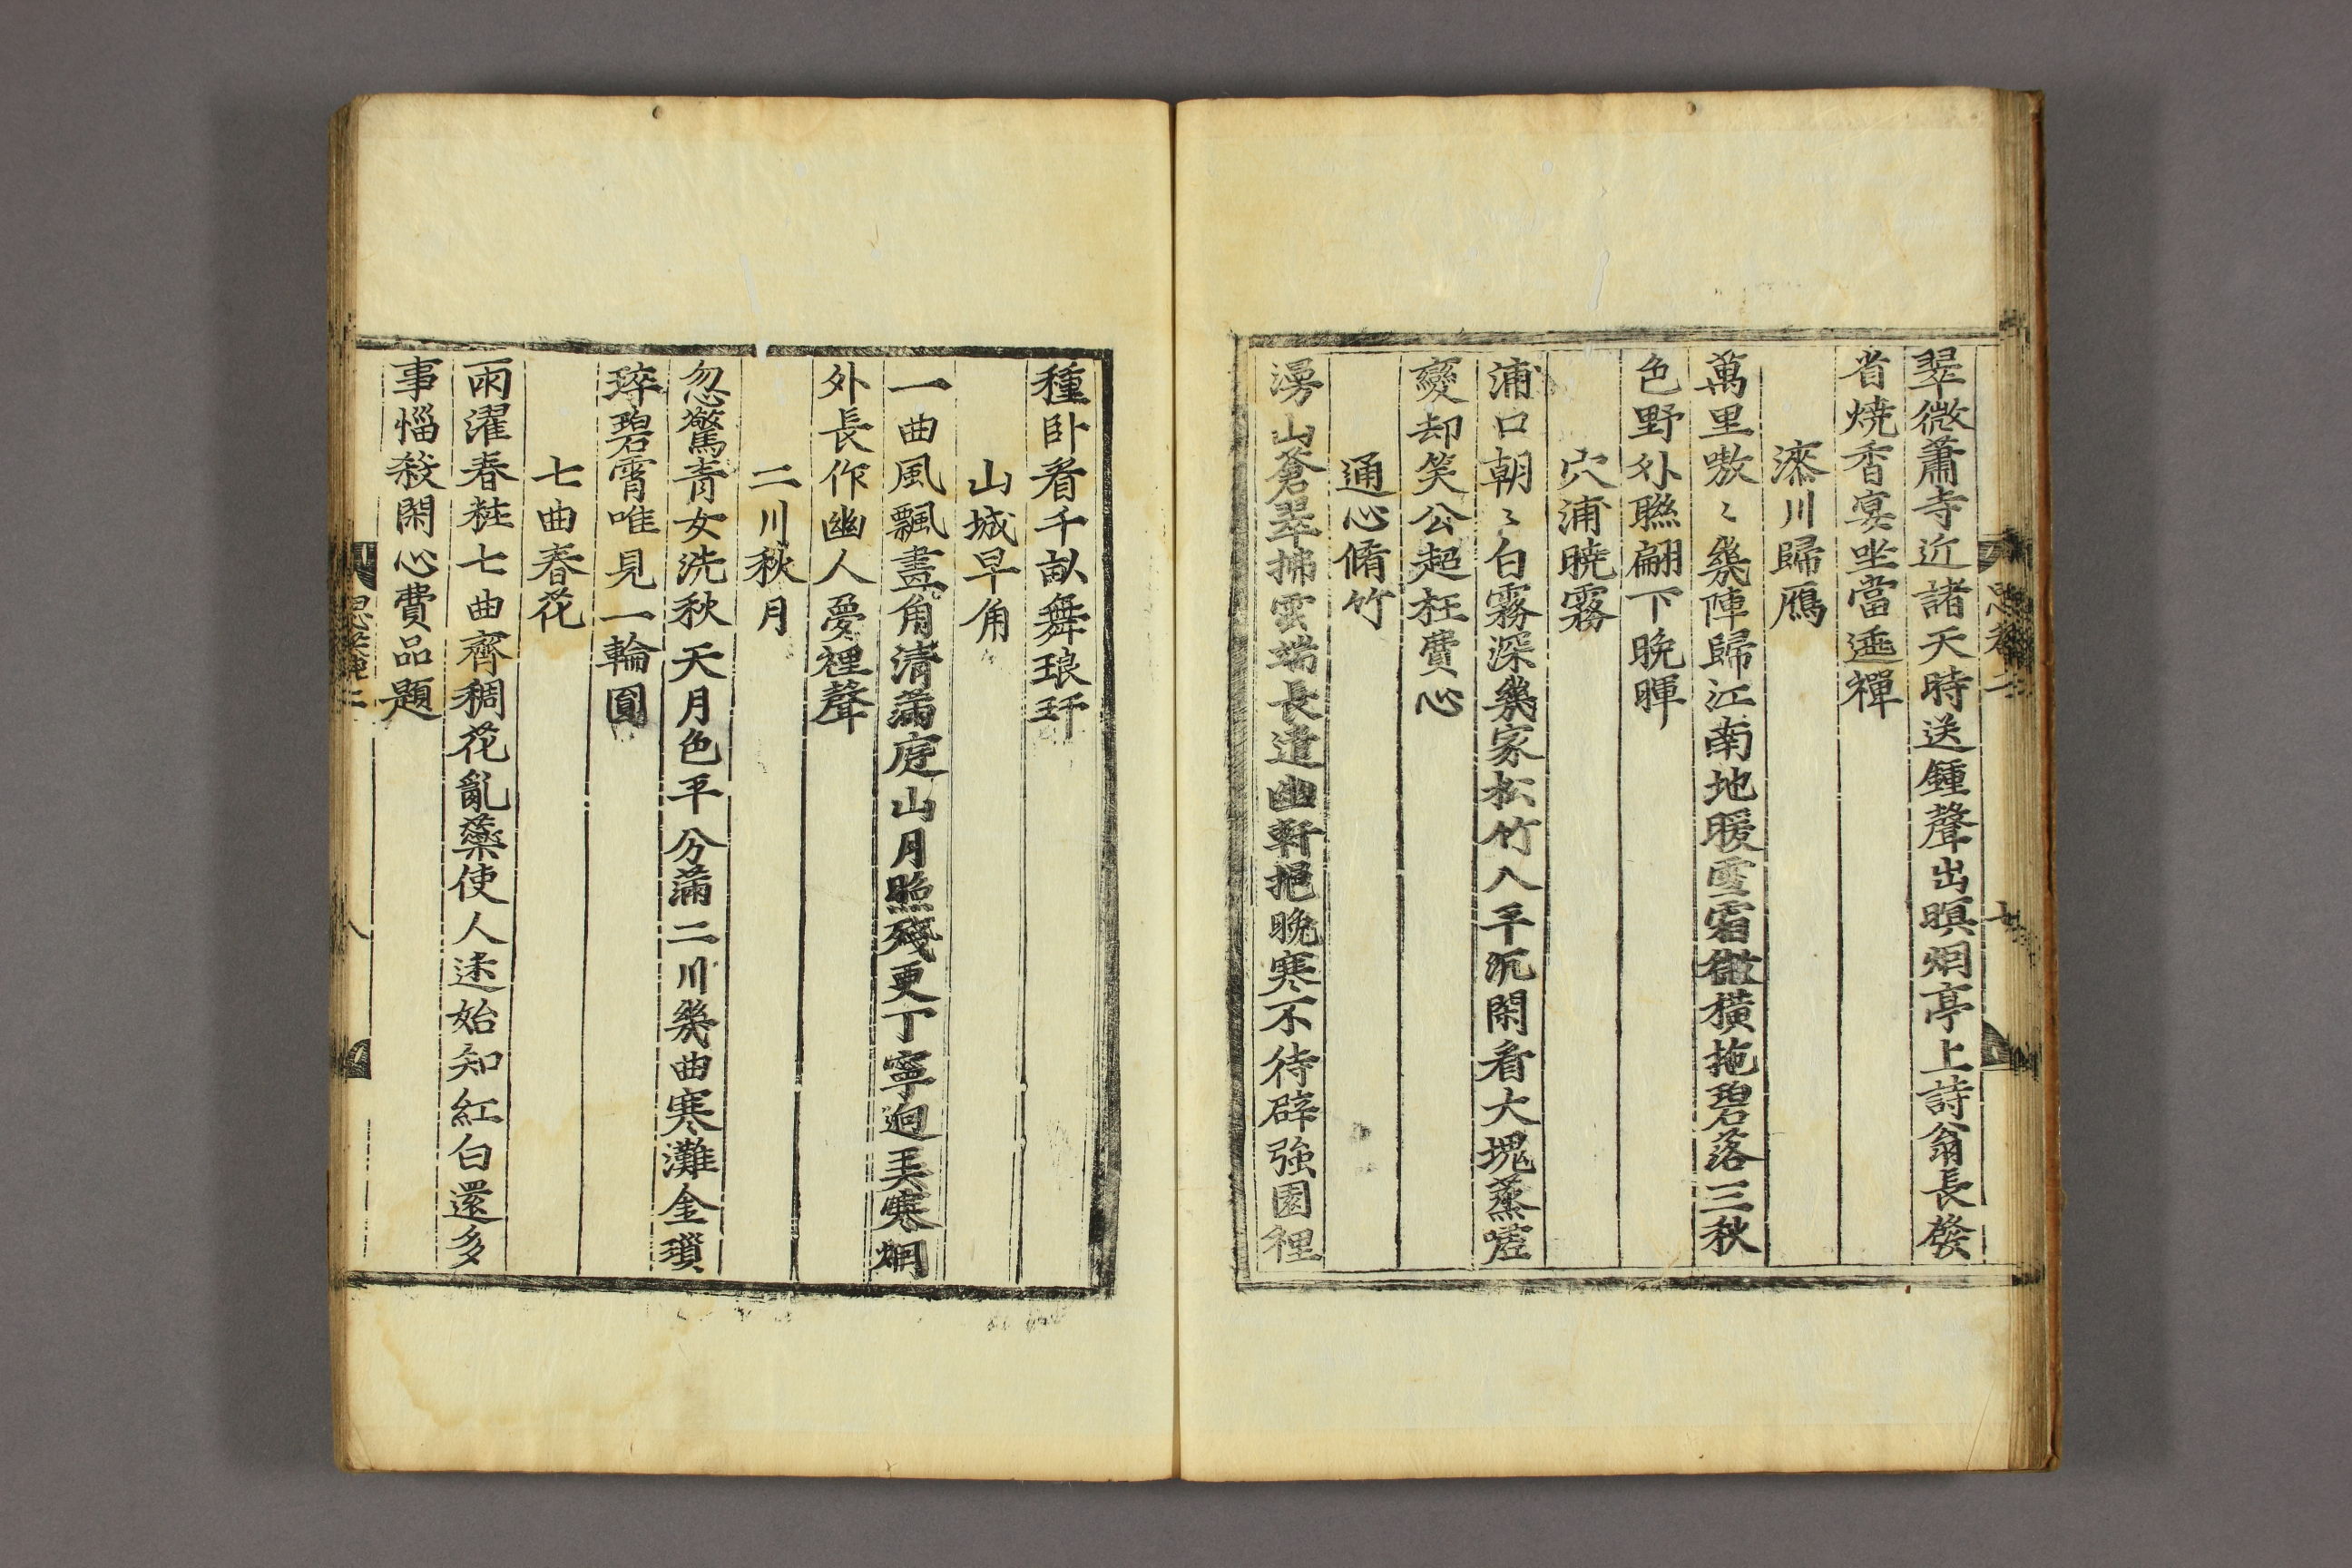 翠微蕭寺近諸天時送鍾聲出暝烟亭上詩翁長發
省燒香宴坐當逃禪
漆川歸鴈
萬里嗷〻幾陣歸江南地暖雪霜微橫拖碧落三秋
色野外聯翩下晩暉
穴浦曉霧
浦口朝〻白霧深幾家松竹入平沉閑看大塊蒸噓
變却笑公超枉費心
通心脩竹
漫山蒼翠拂雲端長遣幽軒挹晩寒不待辟強園裡
種卧看千畝舞琅玕
山城早角
一曲風飄畫角淸滿庭山月照殘更丁寧迥弄寒烟
外長作幽人夢裡聲
二川秋月
忽驚靑女洗秋天月色平分滿二川幾曲寒灘金瑣
碎碧霄唯見一輪圓
七曲春花
雨濯春粧七曲齊稠花亂蘂使人迷始知紅白還多
事惱殺閑心費品題